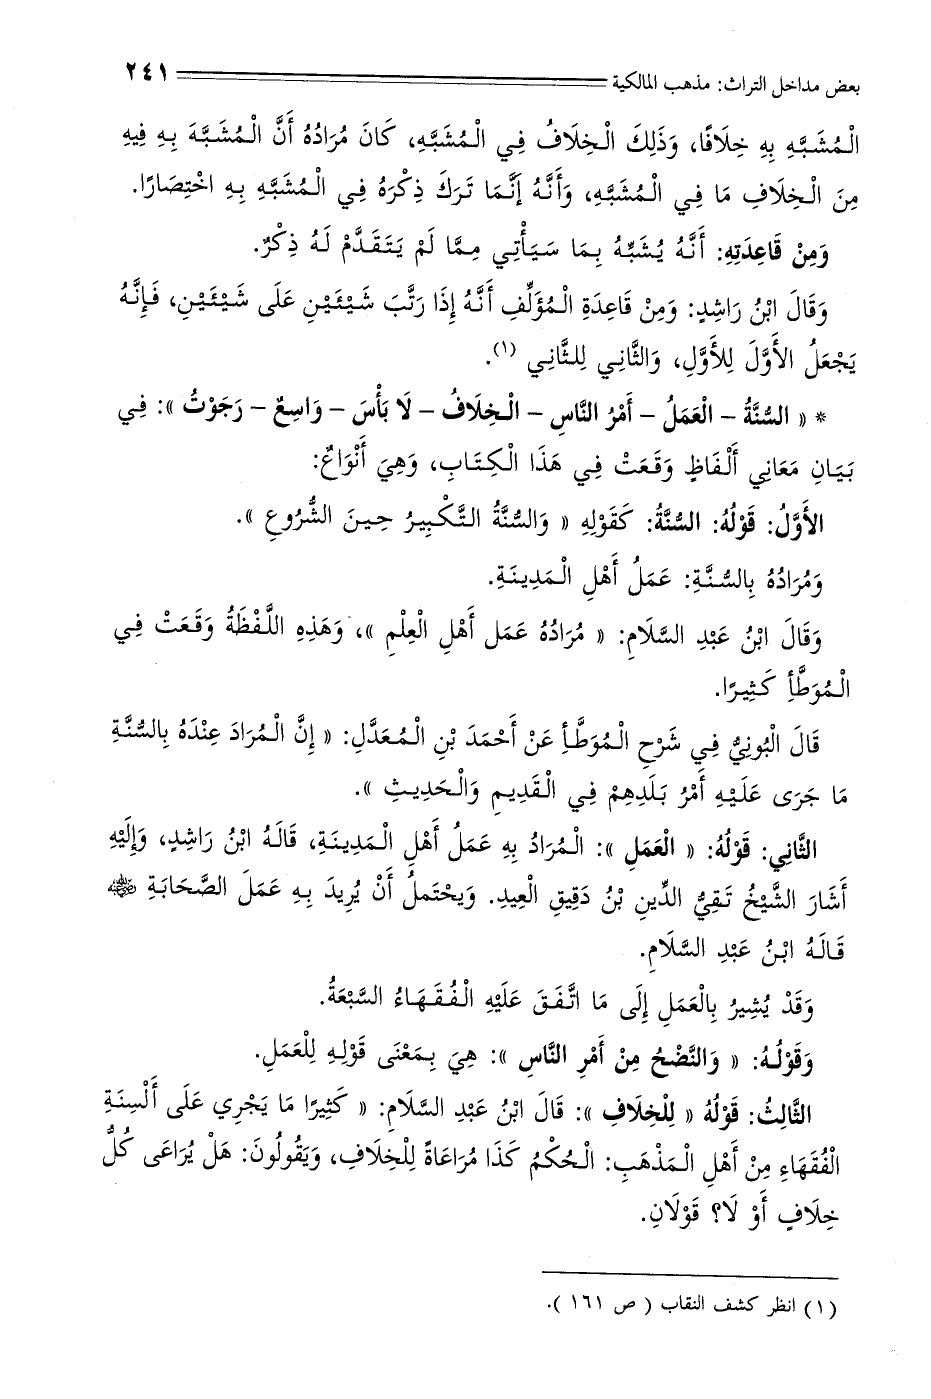 بعض مداخل التراث: مذهب المالكية ٢٤١
الْمُشَبَّهِ بِهِ خِلَافًا، وَذَلِكَ الْخِلَافُ فِي الْمُشَبَّهِ، كَانَ مُرَادُهُ أَنَّ الْمُشَبَّهَ بِهِ فِيهِ
مِنَ الْخِلَافِ مَا فِي الْمُشَبَّهِ، وَأَنَّهُ إِنَّمَا تَرَكَ ذِكْرَهُ فِي الْمُشَبَّهِ بِهِ اخْتِصَارًا.
وَمِنْ قَاعِدَتِهِ: أَنَّهُ يُشَبِّهُ بِمَا سَيَأْتِي مِمَّا لَمْ يَتَقَدَّمْ لَهُ ذِكْرٌ.
وَقَالَ ابْنُ رَاشِدٍ: وَمِنْ قَاعِدَةِ الْمُؤَلِّفِ أَنَّهُ إِذَا رَتَّبَ شَيْئَيْنِ عَلَى شَيْئَيْنِ، فَإِنَّهُ
يَجْعَلُ الأَوَّلَ لِلأَوَّلِ، وَالثَّانِي لِلثَّانِي (١).
* « السُّنَّةُ – الْعَمَلُ – أَمْرُ النَّاسِ – الْخِلَافُ – لَا بَأْسَ – وَاسِعٌ – رَجَوْتُ »: فِي
بَيَانِ مَعَانِي أَلْفَاظٍ وَقَعَتْ فِي هَذَا الْكِتَابِ، وَهِيَ أَنْوَاعٌ:
الأَوَّلُ: قَوْلُهُ: السُّنَّةُ: كَقَوْلِهِ « وَالسُّنَّةُ التَّكْبِيرُ حِينَ الشُّرُوعِ ».
وَمُرَادُهُ بِالسُّنَّةِ: عَمَلُ أَهْلِ الْمَدِينَةِ.
وَقَالَ ابْنُ عَبْدِ السَّلَامِ: « مُرَادُهُ عَمَل أَهْلِ الْعِلْمِ »، وَهَذِهِ اللَّفْظَةُ وَقَعَتْ فِي
الْمُوَطَّأِ كَثِيرًا.
قَالَ الْبُونِيُّ فِي شَرْحِ الْمُوَطَّأِ عَنْ أَحْمَدَ بْنِ الْمُعَدَّلِ: « إِنَّ الْمُرَادَ عِنْدَهُ بِالسُّنَّةِ
مَا جَرَى عَلَيْهِ أَمْرُ بَلَدِهِمْ فِي الْقَدِيمِ وَالْحَدِيثِ ».
الثَّانِي: قَوْلُهُ: « الْعَمَلِ »: الْمُرَادُ بِهِ عَمَلُ أَهْلِ الْمَدِينَةِ، قَالَهُ ابْنُ رَاشِدٍ، وَإِلَيْهِ
أَشَارَ الشَّيْخُ تَقِيُّ الدِّينِ بْنُ دَقِيقِ الْعِيدِ. وَيَحْتَمِلُ أَنْ يُرِيدَ بِهِ عَمَلَ الصَّحَابَةِ ﷺ
قَالَهُ ابْنُ عَبْدِ السَّلَامِ.
وَقَدْ يُشِيرُ بِالْعَمَلِ إِلَى مَا اتَّفَقَ عَلَيْهِ الْفُقَهَاءُ السَّبْعَةُ.
وَقَوْلُهُ: « وَالنَّضْحُ مِنْ أَمْرِ النَّاسِ »: هِيَ بِمَعْنَى قَوْلِهِ لِلْعَمَلِ.
الثَّالِثُ: قَوْلُهُ « لِلْخِلَافِ »: قَالَ ابْنُ عَبْدِ السَّلَامِ: « كَثِيرًا مَا يَجْرِي عَلَى أَلْسِنَةِ
الْفُقَهَاءِ مِنْ أَهْلِ الْمَذْهَبِ: الْحُكْمُ كَذَا مُرَاعَاةً لِلْخِلَافِ، وَيَقُولُونَ: هَلْ يُرَاعَى كُلُّ
خِلَافٍ أَوْ لَا؟ قَوْلَانِ.
(١) انظر كشف النقاب ( ص ١٦١ ).